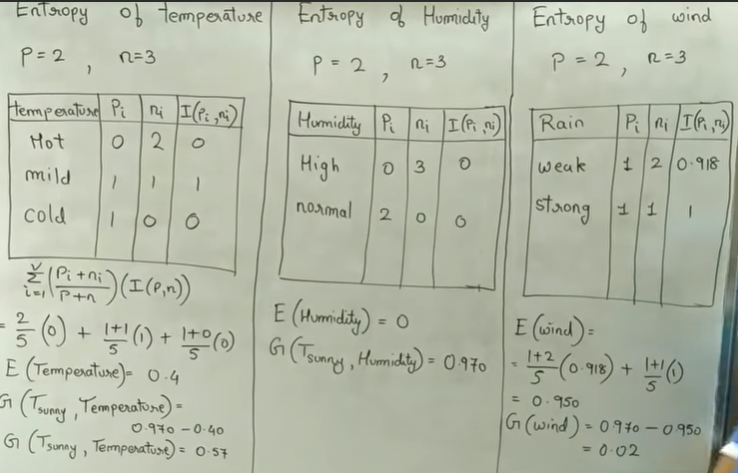 Entropy of temperature
P=2 , n=3
temperature Pi ni I(Pi,ni)
Hot 0 2 0
mild 1 1 1
cold 1 0 0
∑ᵛi=1 (Pi+ni/P+n)(I(P,n))
= 2/5 (0) + 1+1/5 (1) + 1+0/5 (0)
E (Temperature)= 0.4
G (Tsunny, Temperature)=
0.970 - 0.40
G (Tsunny, Temperature)= 0.57
Entropy of Humidity
P = 2 , n=3
Humidity Pi ni I(Pi,ni)
High 0 3 0
normal 2 0 0
E (Humidity) = 0
G(Tsunny, Humidity) = 0.970
Entropy of wind
P = 2 , n=3
Rain Pi ni I(Pi,ni)
weak 1 2 0.918
strong 1 1 1
E (wind)=
= 1+2/5 (0.918) + 1+1/5 (1)
= 0.950
G(wind) = 0.970 - 0.950
= 0.02